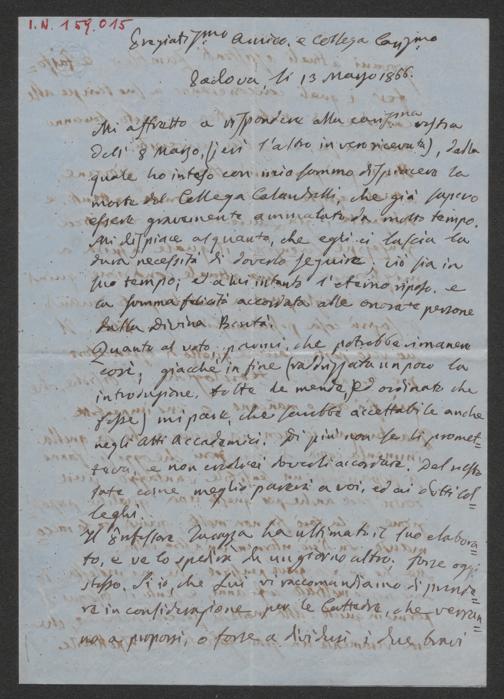 I.N. 159.015
Egregiatis.mo Amico, e Collega Cariss.mo
Padova, li 13 Marzo 1866.
Mi affretto a rispondere alla cariss.ma vostra
dell' 8 Marzo, (jeri l'altro in ricevuta), dalla
quale ho inteso con mio sommo dispiacere la
morte del Collega Calandrelli, che già sapevo
essere gravemente ammalato da molto tempo.
Mi dispiace alquanto, che egli ci lascia la
dura necessità di doverlo seguire ciò sia in
suo tempo; ed a lui intanto l'eterno riposo, e
la somma felicità accordata alle onorate persone
dalla Divina Bontà.
Quanto al voto parmi, che potrebbe rimanere
così, giacchè in fine (raddrizzata un poco la
introduzione, tolte le mende, ed ordinato che
fosse) mi pare, che sarebbe accettabile anche
negli Atti Accademici. Di più non se li promet=
teva, e non crederei doverli accordare. Del resto
fate come meglio parerà a voi, ed ai dotti Col=
leghi.
Il Professore Turazza ha ultimato il suo elabora=
to, e ve lo spedirà di un giorno all'altro, forse oggi
stesso. Sì io, che lui vi raccomandiamo di prende=
re in considerazione per le Cattedre, che verran=
no a proporsi, o forse a dividersi i due bravi